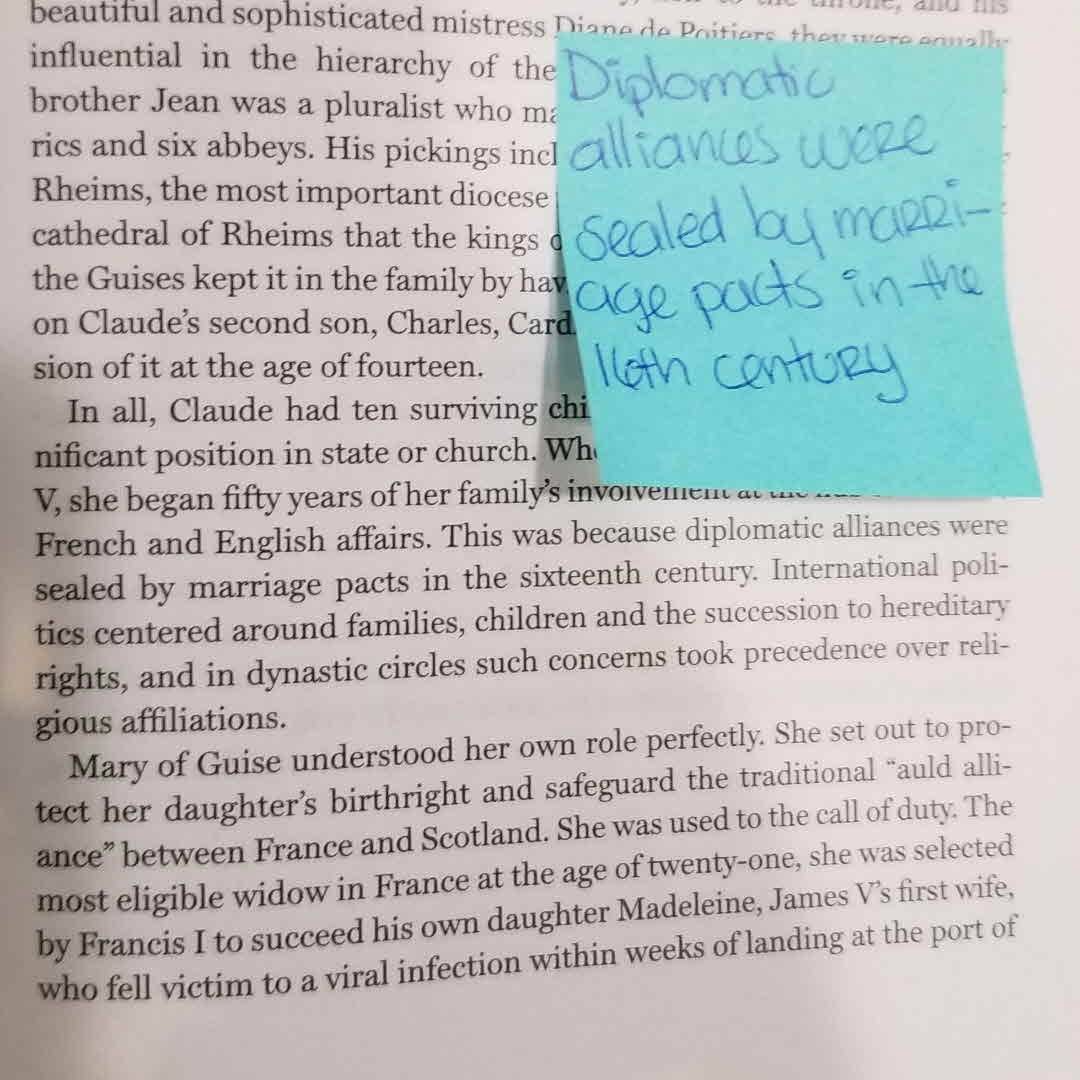 beautiful and sophisticated mistress Diane de Poitiers, they were equally
influential in the hierarchy of the
brother Jean was a pluralist who
rics and six abbeys. His pickings
Rheims, the most important diocese
cathedral of Rheims that the kings
the Guises kept it in the family by
on Claude's second son, Charles,
sion of it at the age of fourteen.
In all, Claude had ten surviving
nificant position in state or church.
V, she began fifty years of her family's involvement at the
French and English affairs. This was because diplomatic alliances were
sealed by marriage pacts in the sixteenth century. International poli-
tics centered around families, children and the succession to hereditary
rights, and in dynastic circles such concerns took precedence over reli-
gious affiliations.
Mary of Guise understood her own role perfectly. She set out to pro-
tect her daughter's birthright and safeguard the traditional “auld alli-
ance” between France and Scotland. She was used to the call of duty. The
most eligible widow in France at the age of twenty-one, she was selected
by Francis I to succeed his own daughter Madeleine, James V's first wife,
who fell victim to a viral infection within weeks of landing at the port of
Diplomatic
alliances were
sealed by marri-
age pacts in the
16th century